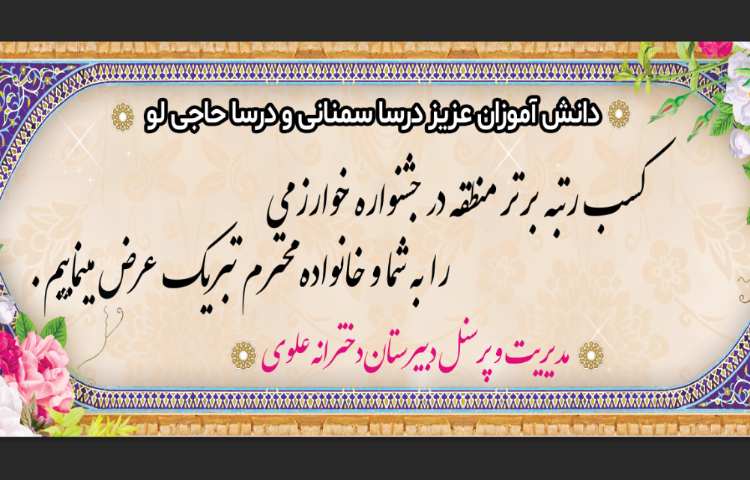 دانش آموزان عزیز درسا سمنانی و درسا حاجی لو
کسب رتبه برتر منطقه در جشنواره خوارزمی
را به شما و خانواده محترم تبریک عرض مینماییم .
مدیریت و پرسنل دبیرستان دخترانه علوی